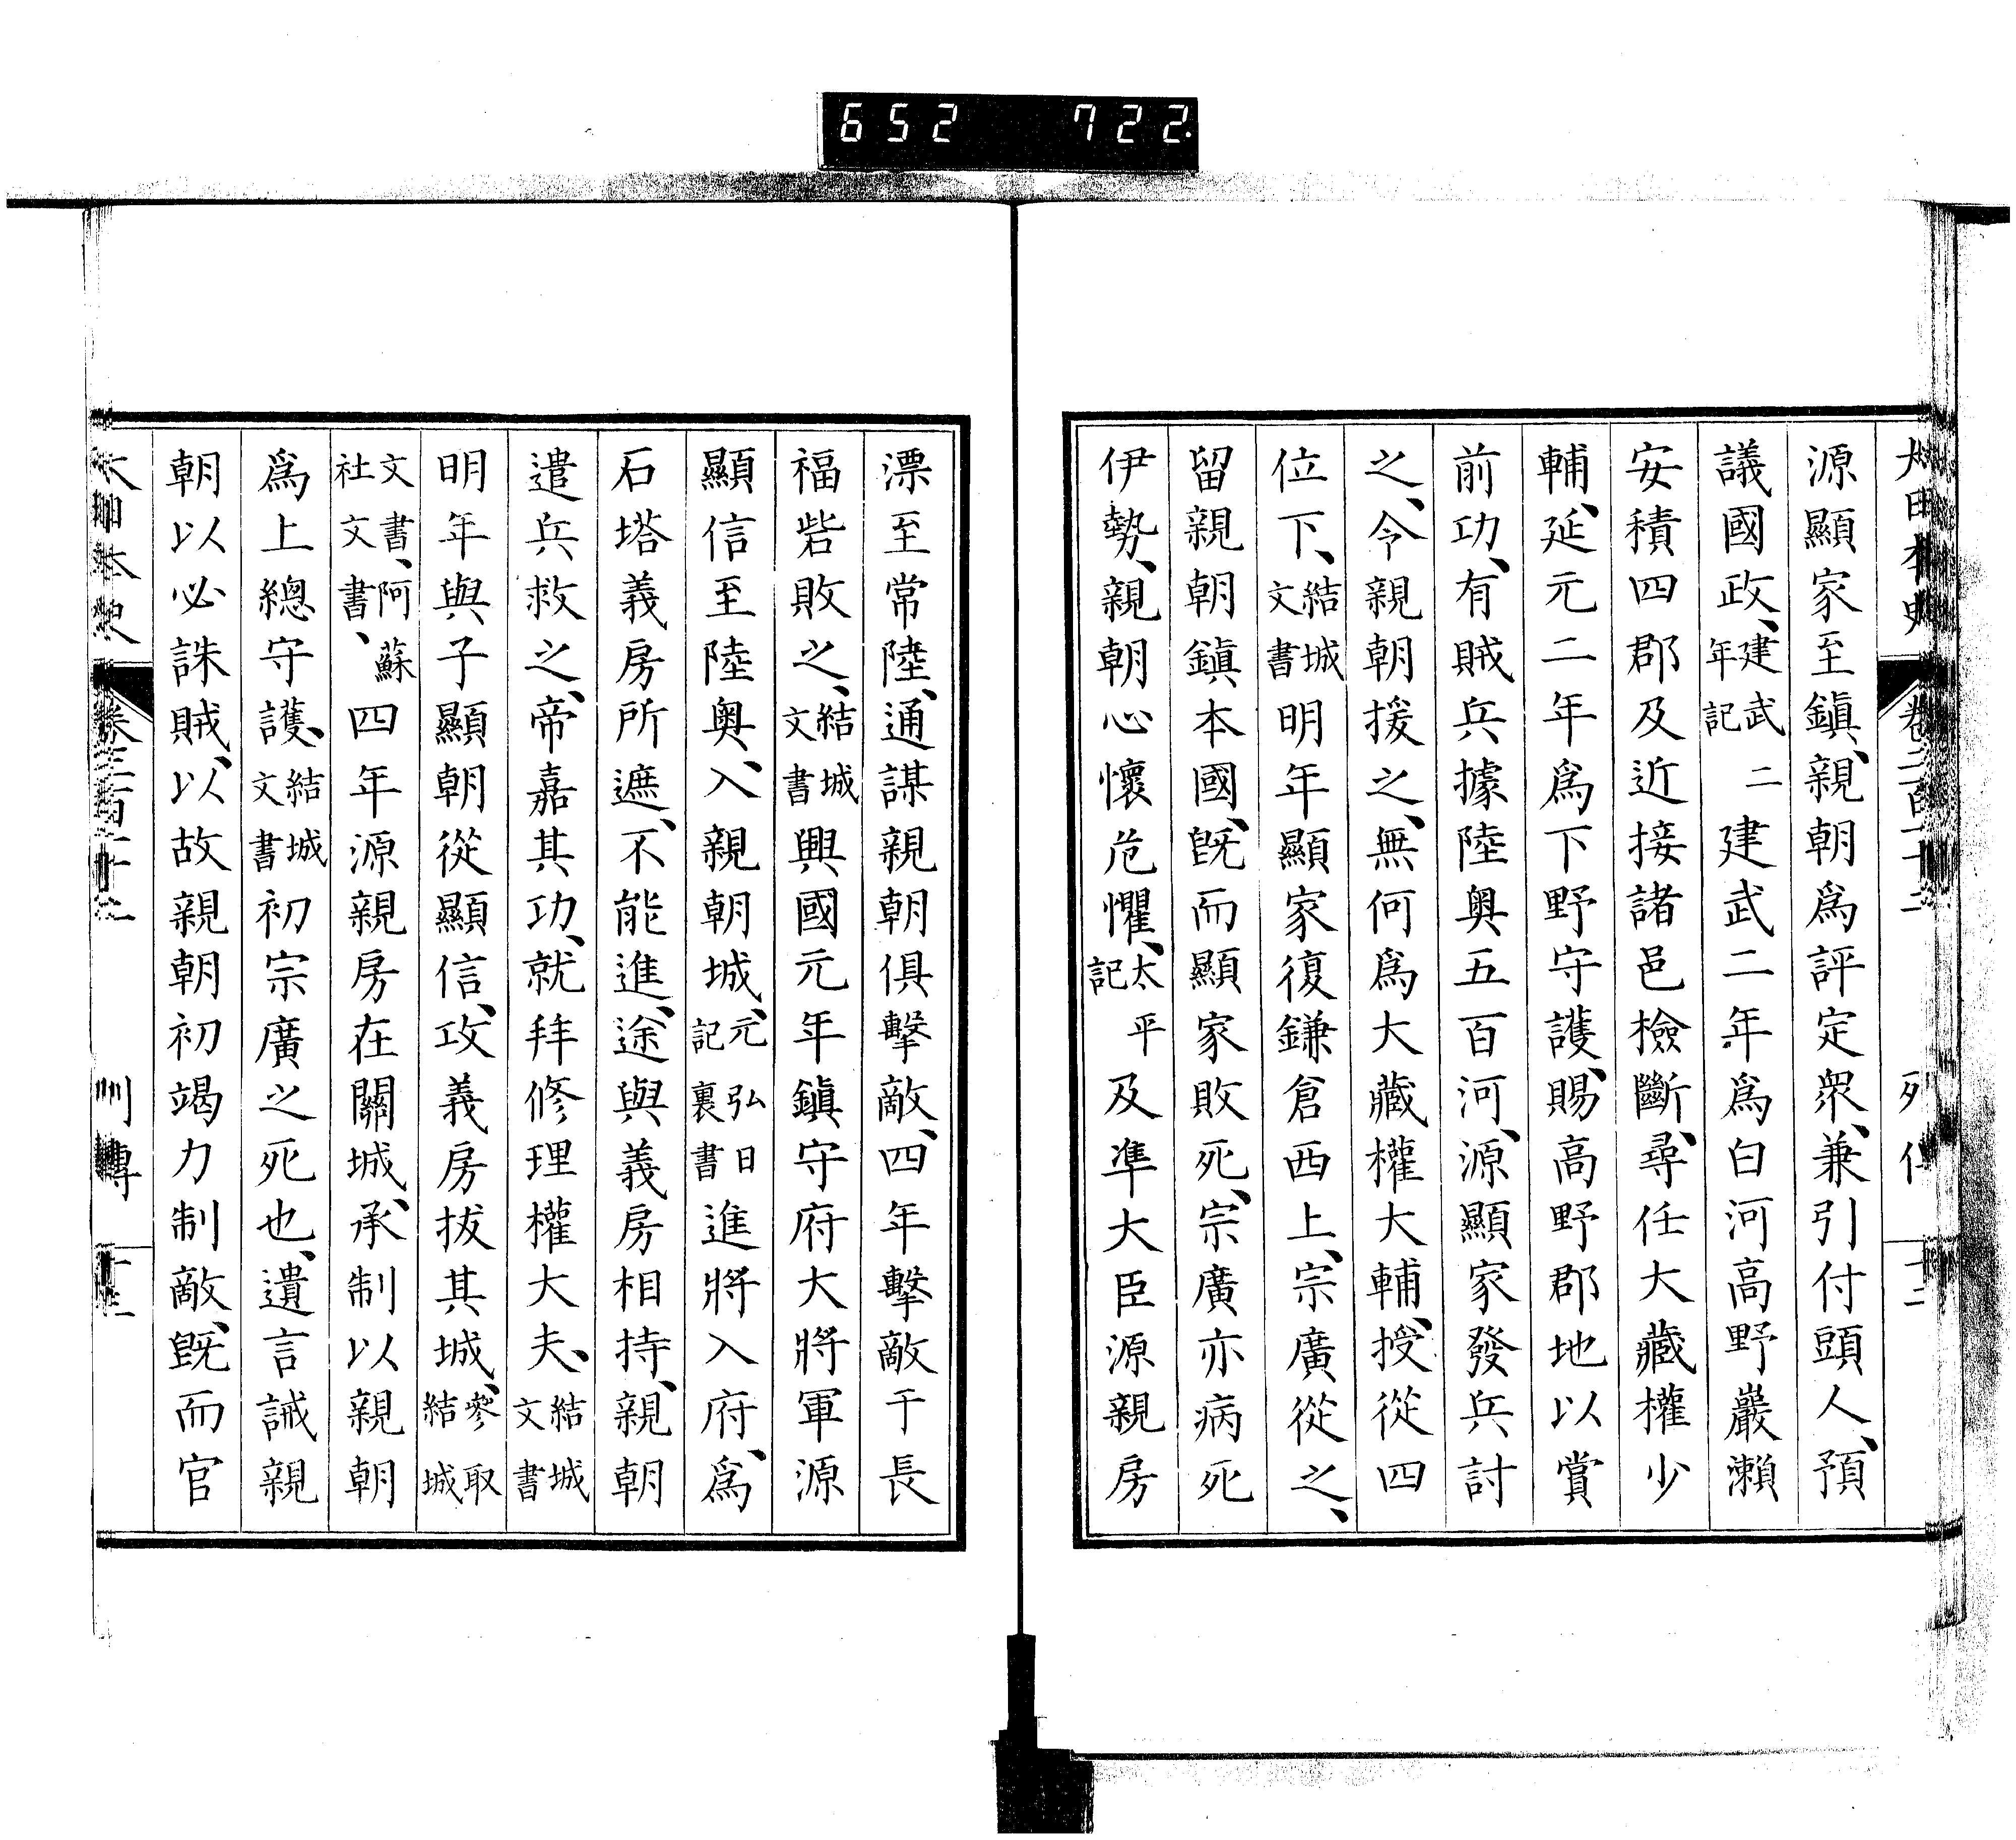 652 722
源顯家至鎭、親朝爲評定衆、兼引付頭人、預
議國政、建武二年記建武二年爲白河高野巖瀬
安積四郡及近接諸邑檢斷、尋任大藏權少
輔、延元二年爲下野守護、賜高野郡地以賞
前功、有賊兵據陸奧五百河、源顯家發兵討
之、令親朝援之、無何爲大藏權大輔、授從四
位下、結城文書明年顯家復鎌倉西上、宗廣從之、
留親朝鎭本國、旣而顯家敗死、宗廣亦病死
伊勢、親朝心懷危懼、太平記及準大臣源親房
漂至常陸、通謀親朝俱擊敵、四年擊敵于長
福砦敗之、結城文書興國元年鎭守府大將軍源
顯信至陸奧、入親朝城、元弘日記裏書進將入府、爲
石塔義房所遮、不能進、途與義房相持、親朝
遣兵救之、帝嘉其功、就拜修理權大夫、結城文書
明年與子顯朝從顯信、攻義房拔其城、參取結城
文書、阿蘇社文書、四年源親房在關城、承制以親朝
爲上總守護、結城文書初宗廣之死也、遺言誡親
朝以必誅賊、以故親朝初竭力制敵、旣而官
大日本史 卷 列傳